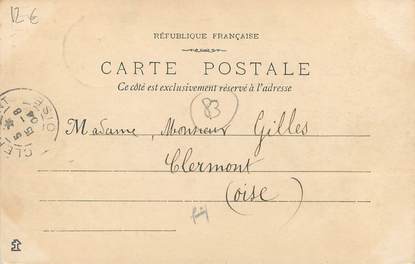 12 €
RÉPUBLIQUE FRANÇAISE
CARTE POSTALE
Ce côté est exclusivement réservé à l'adresse
83
Madame, Monsieur Gilles
Clermont
(oise)
OISE